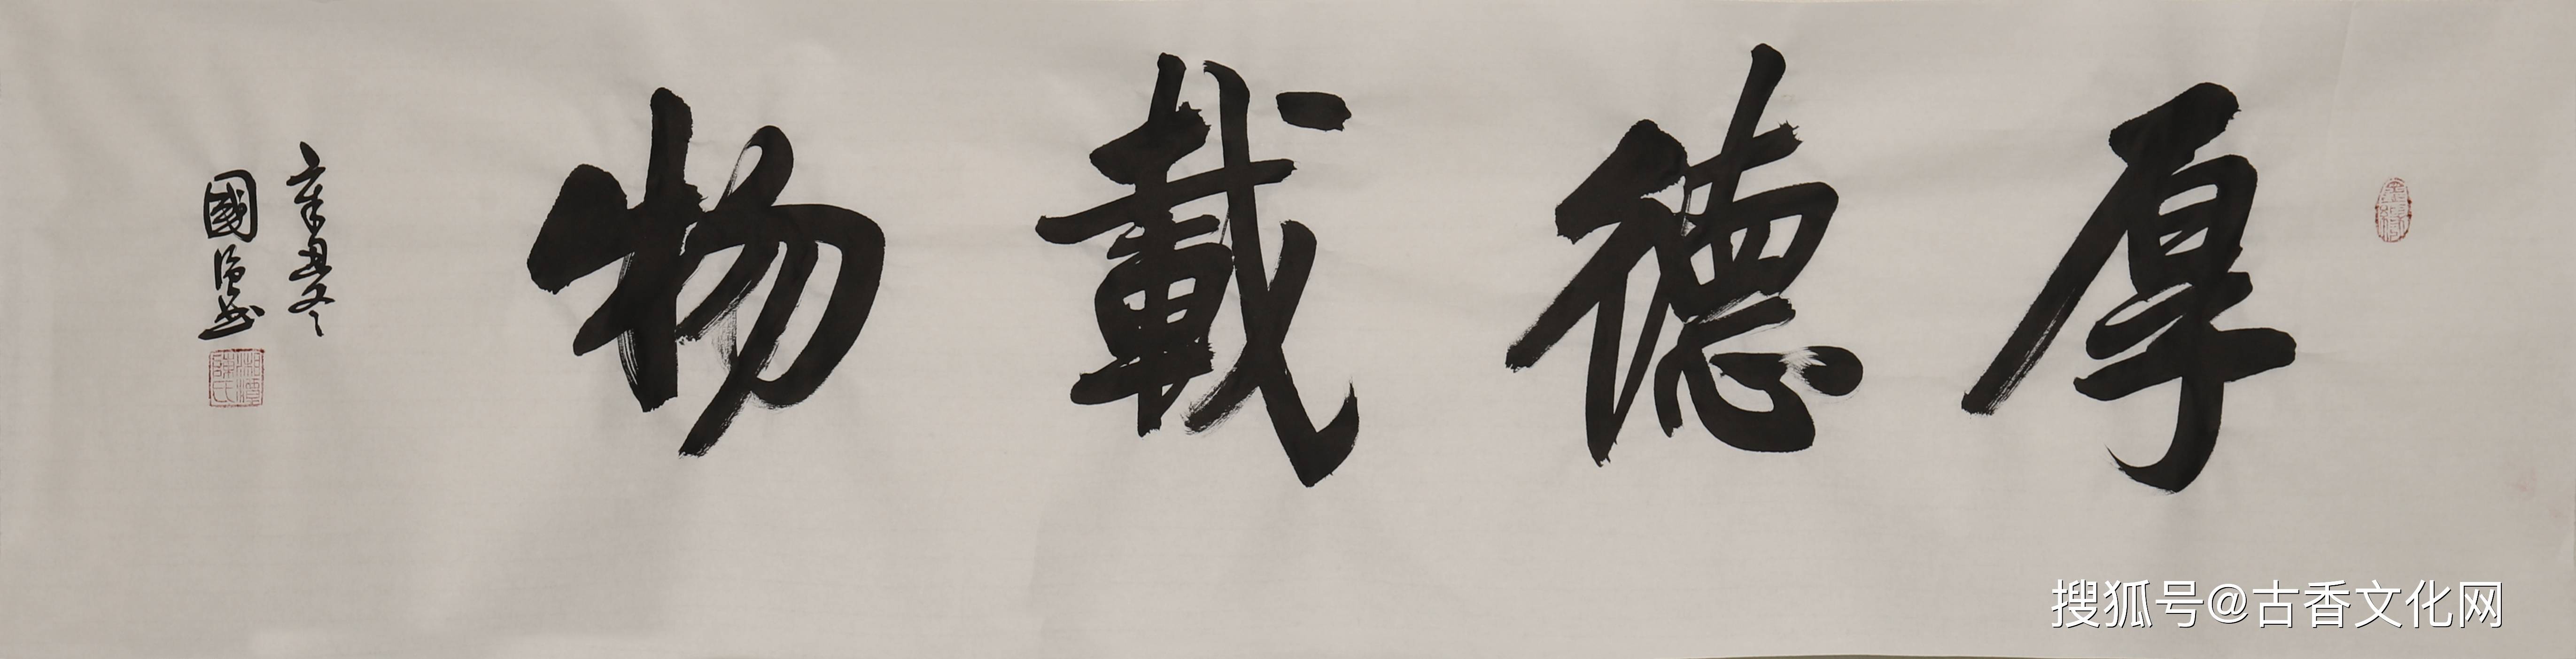 厚德載物
辛丑冬
國強書
搜狐号@古香文化网